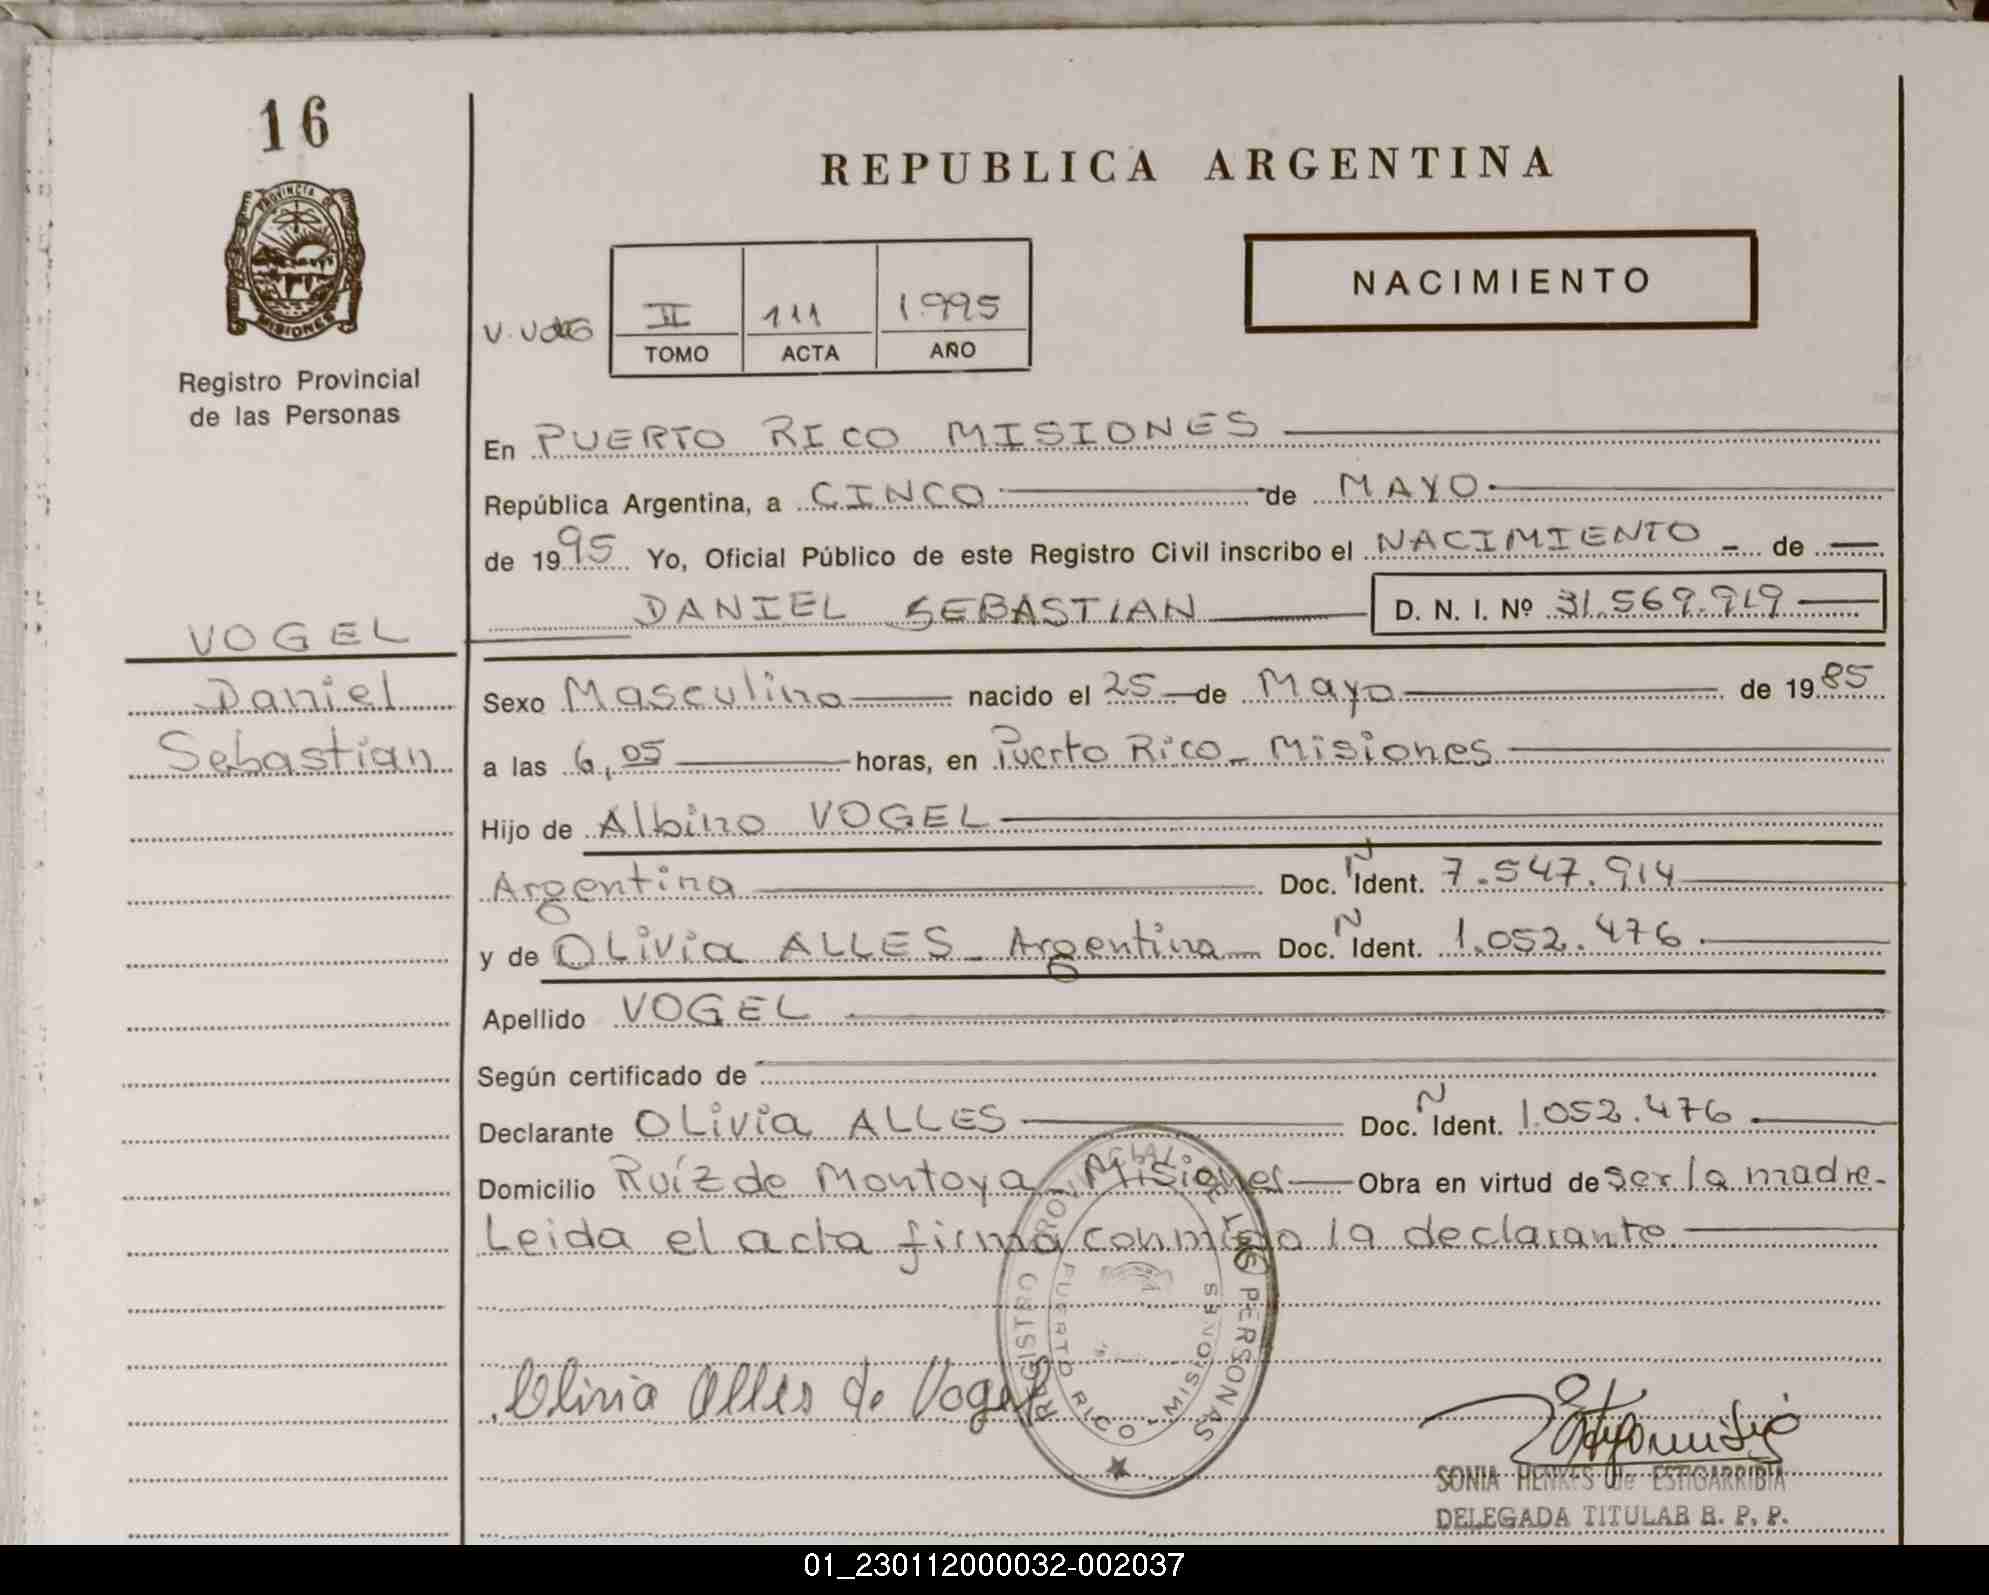 16
PROVINCIA DE
MISIONES
Registro Provincial
de las Personas
VOGEL
Daniel
Sebastian
REPUBLICA ARGENTINA
NACIMIENTO
II 111 1995
TOMO ACTA AÑO
En PUERTO RICO MISIONES
República Argentina, a CINCO de MAYO
de 1995 Yo, Oficial Público de este Registro Civil inscribo el NACIMIENTO - de
DANIEL SEBASTIAN D. N. I. Nº 31.569.919
Sexo Masculino nacido el 25 de Mayo de 1985
a las 6,05 horas, en Puerto Rico - Misiones
Hijo de Albino VOGEL
Argentina Doc. N Ident. 7.547.914
y de OLivia ALLES - Argentina Doc. N Ident. 1.052.476
Apellido VOGEL
Según certificado de
Declarante OLivia ALLES Doc. N Ident. 1.052.476
Domicilio Ruíz de Montoya - Misiones Obra en virtud de ser la madre-
Leida el acta firma conmigo la declarante
REGISTRO PROVINCIAL DE LAS PERSONAS
PUERTO RICO - MISIONES
Olivia Alles de Vogel
SONIA HENKES de ESTIGARRIBIA
DELEGADA TITULAR R. P. P.
01_230112000032-002037